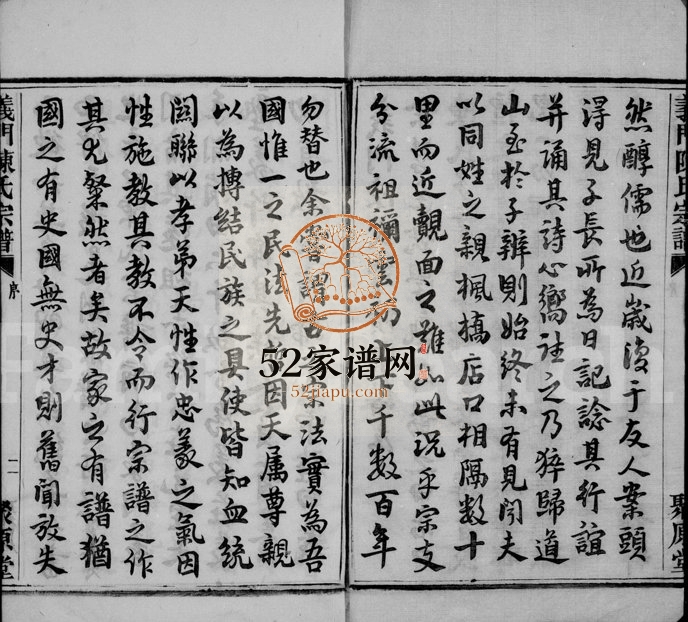 然醇儒也近歲復于友人案頭
得見子長所為日記諗其行誼
并誦其詩心嚮往之乃猝歸道
山至於子辨則始終未有見聞夫
以同姓之親楓橋店口相隔數十
里而近覿面之難如此況乎宗支
分流祖禰 千數百年
勿替也余嘗謂 宗法實為吾
國惟一之民法先 因天属尊親
以為摶結民族之具使皆知血統
関聯以孝弟天性作忠義之氣因
性施教其教不令而行宗譜之作
其尤粲然者矣故家之有譜猶
國之有史國無史才則舊聞放失
義門陳氏宗譜
序
二
聚原堂
52家谱网
52jiapu.com